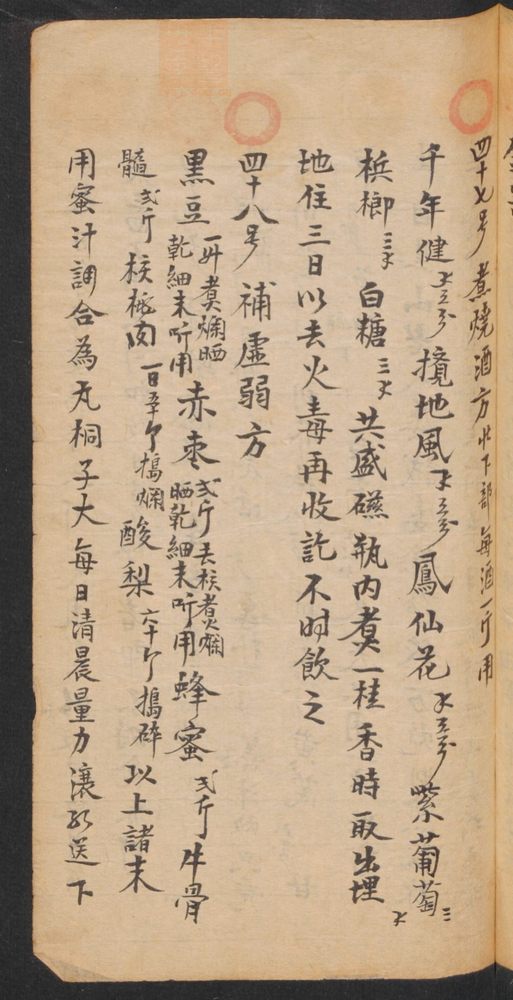 四十七号 煮燒酒方 下部 每酒一斤用
千年健 攪地風 鳳仙花 紫葡萄三
梹榔 白糖 共盛磁瓶內煑一桂香時取出埋
地住三日以去火毒再收訖不时飲之
四十八号 補虛弱方
黑豆一升煑爛晒乾細末听用赤枣弍斤去核煑爛晒乾細末听用蜂蜜弍斤牛骨
髓弍斤核桃肉一百五十个搗爛酸梨六十个搗碎以上諸末
用蜜汁調合為丸桐子大每日清晨量力滾水送下